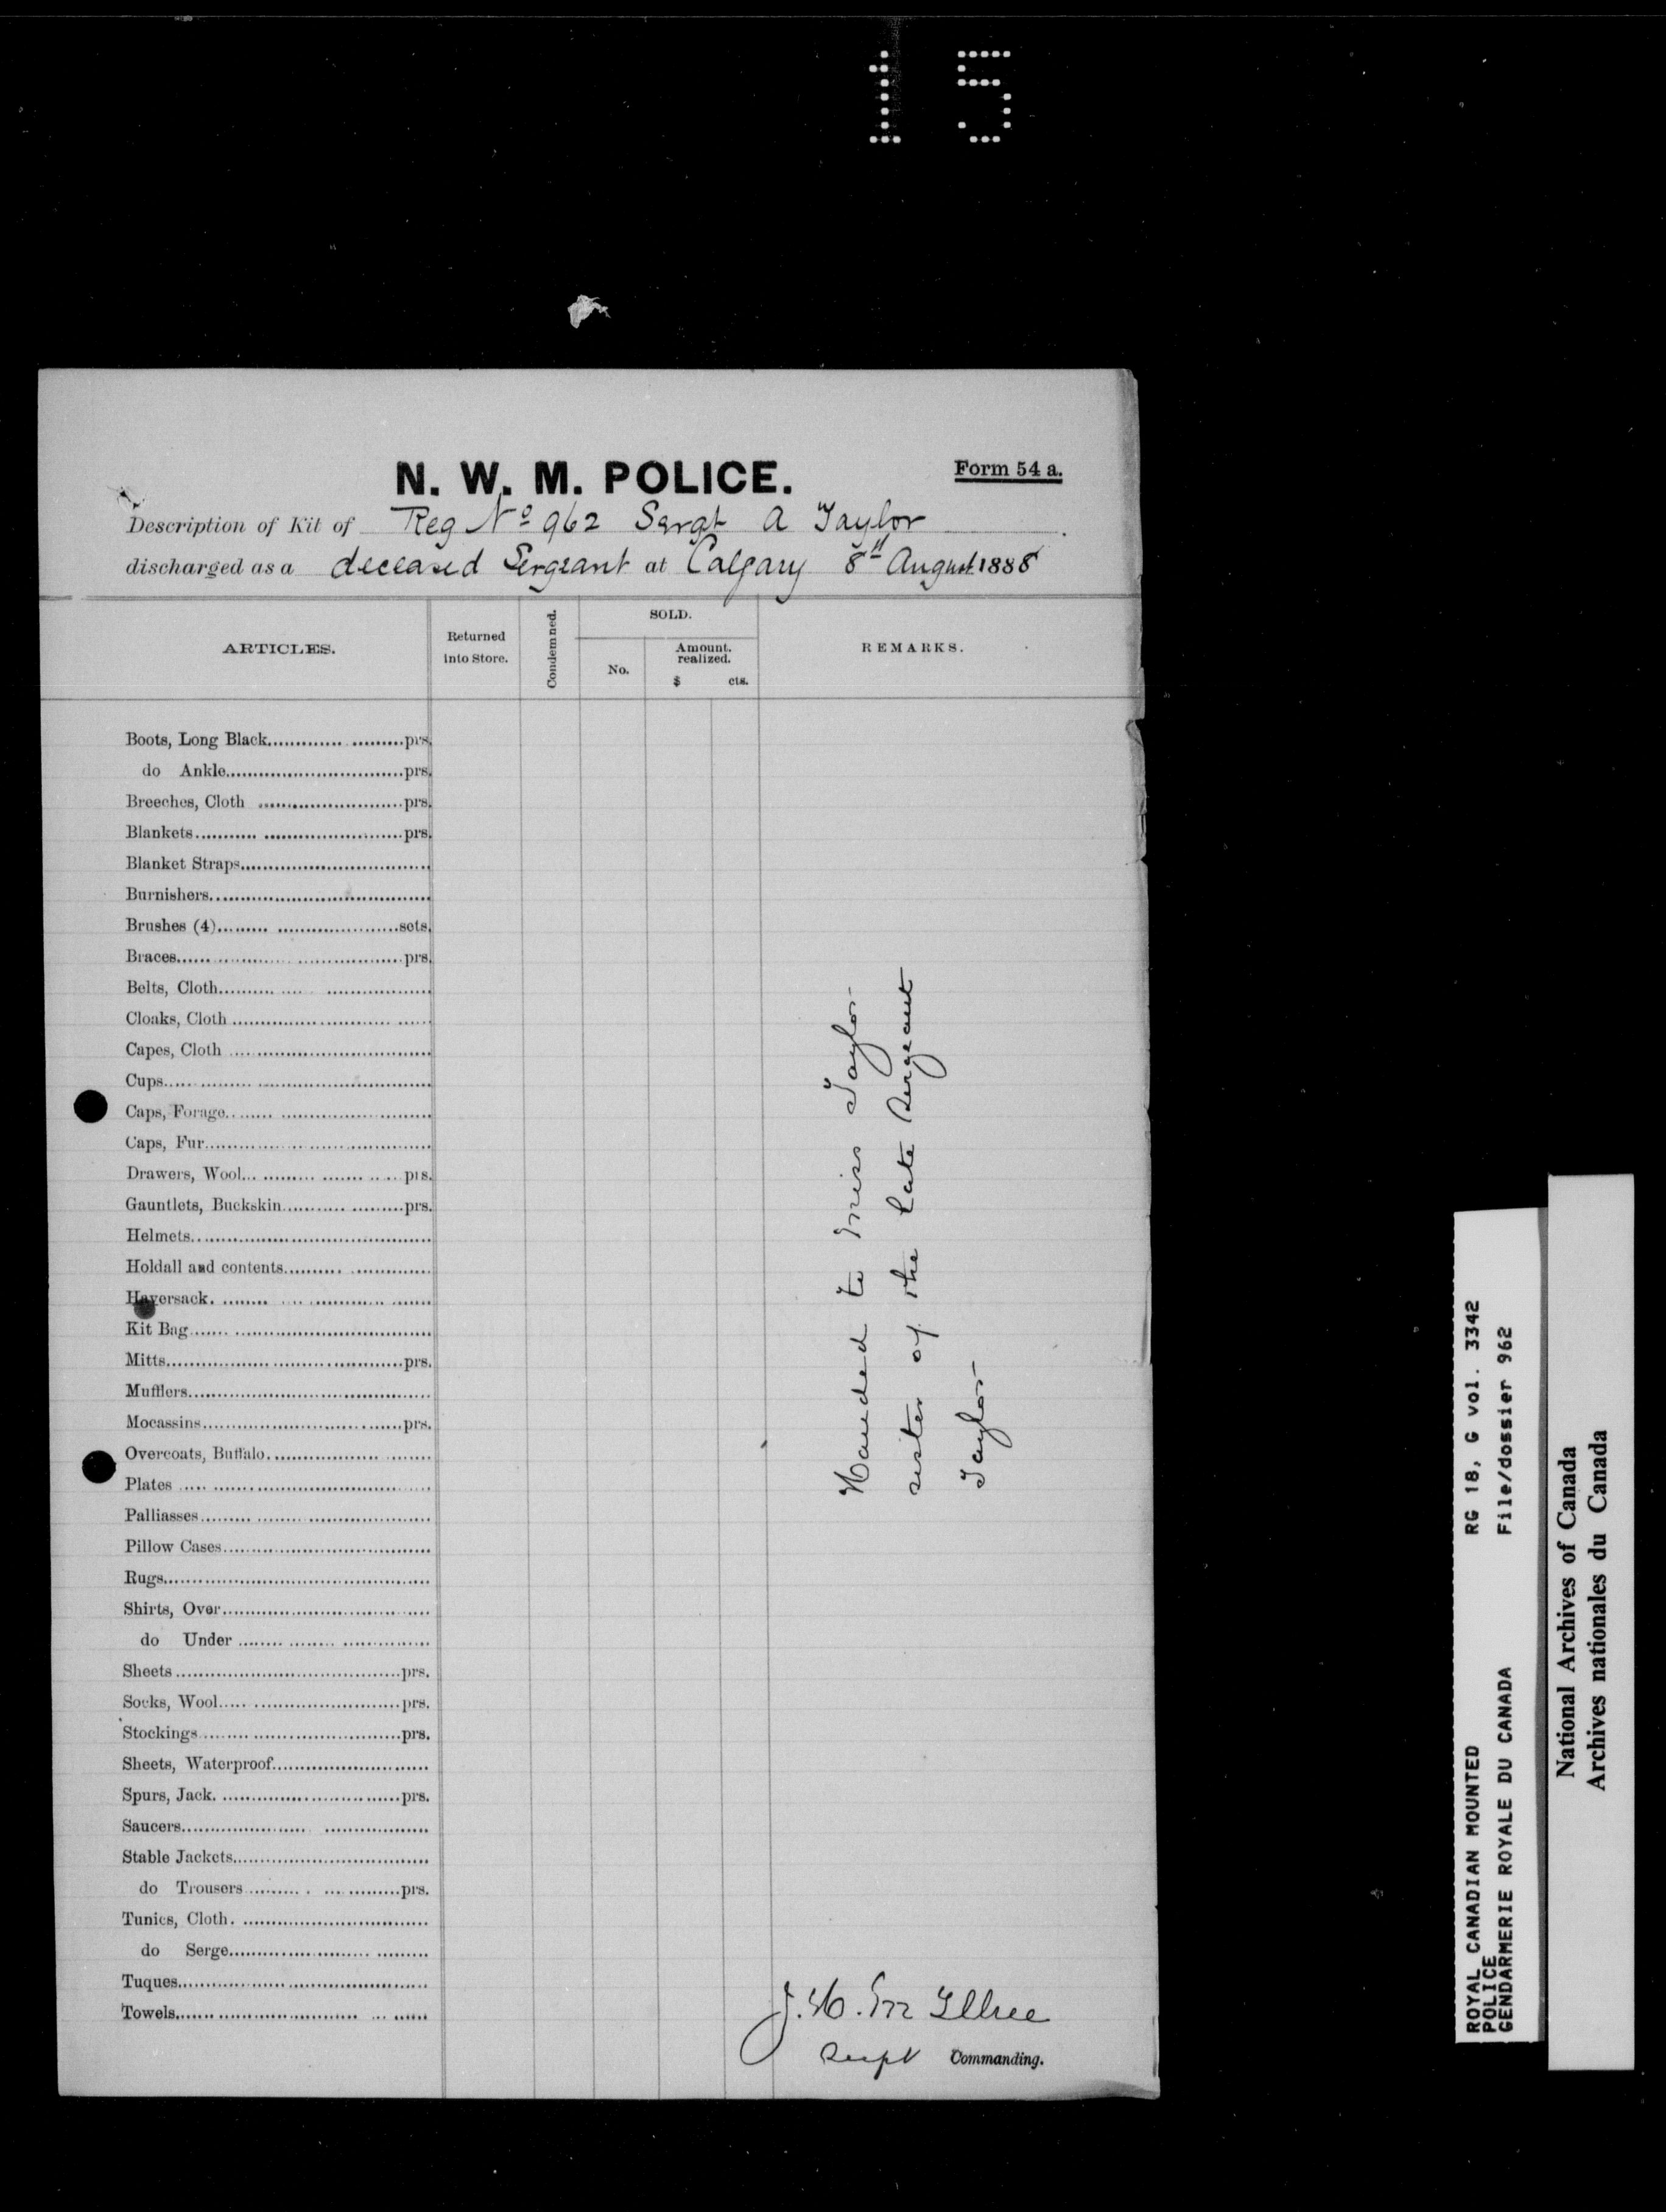 15
N. W. M. POLICE.
Form 54 a.
Description of Kit of Reg No 962 Sergt A Taylor
discharged as a deceased Sergeant at Calgary 8th August 1888
ARTICLES.
Returned into Store.
Condemned.
SOLD.
No.
Amount. realized.
$ cts.
REMARKS.
Boots, Long Black prs.
do Ankle prs.
Breeches, Cloth prs.
Blankets prs.
Blanket Straps
Burnishers
Brushes (4) sets.
Braces prs.
Belts, Cloth
Cloaks, Cloth
Capes, Cloth
Cups
Caps, Forage
Caps, Fur
Drawers, Wool prs.
Gauntlets, Buckskin prs.
Helmets
Holdall and contents
Haversack
Kit Bag
Mitts prs.
Mufflers
Mocassins prs.
Overcoats, Buffalo
Plates
Palliasses
Pillow Cases
Rugs
Shirts, Over
do Under
Sheets prs.
Socks, Wool prs.
Stockings prs.
Sheets, Waterproof
Spurs, Jack prs.
Saucers
Stable Jackets
do Trousers prs.
Tunics, Cloth
do Serge
Tuques
Towels
Handed to Miss Taylor
sister of the late Sergeant
Taylor
J. H. McIllree
Supt Commanding.
ROYAL CANADIAN MOUNTED RG 18, G vol. 3342
POLICE
GENDARMERIE ROYALE DU CANADA File/dossier 962
National Archives of Canada
Archives nationales du Canada